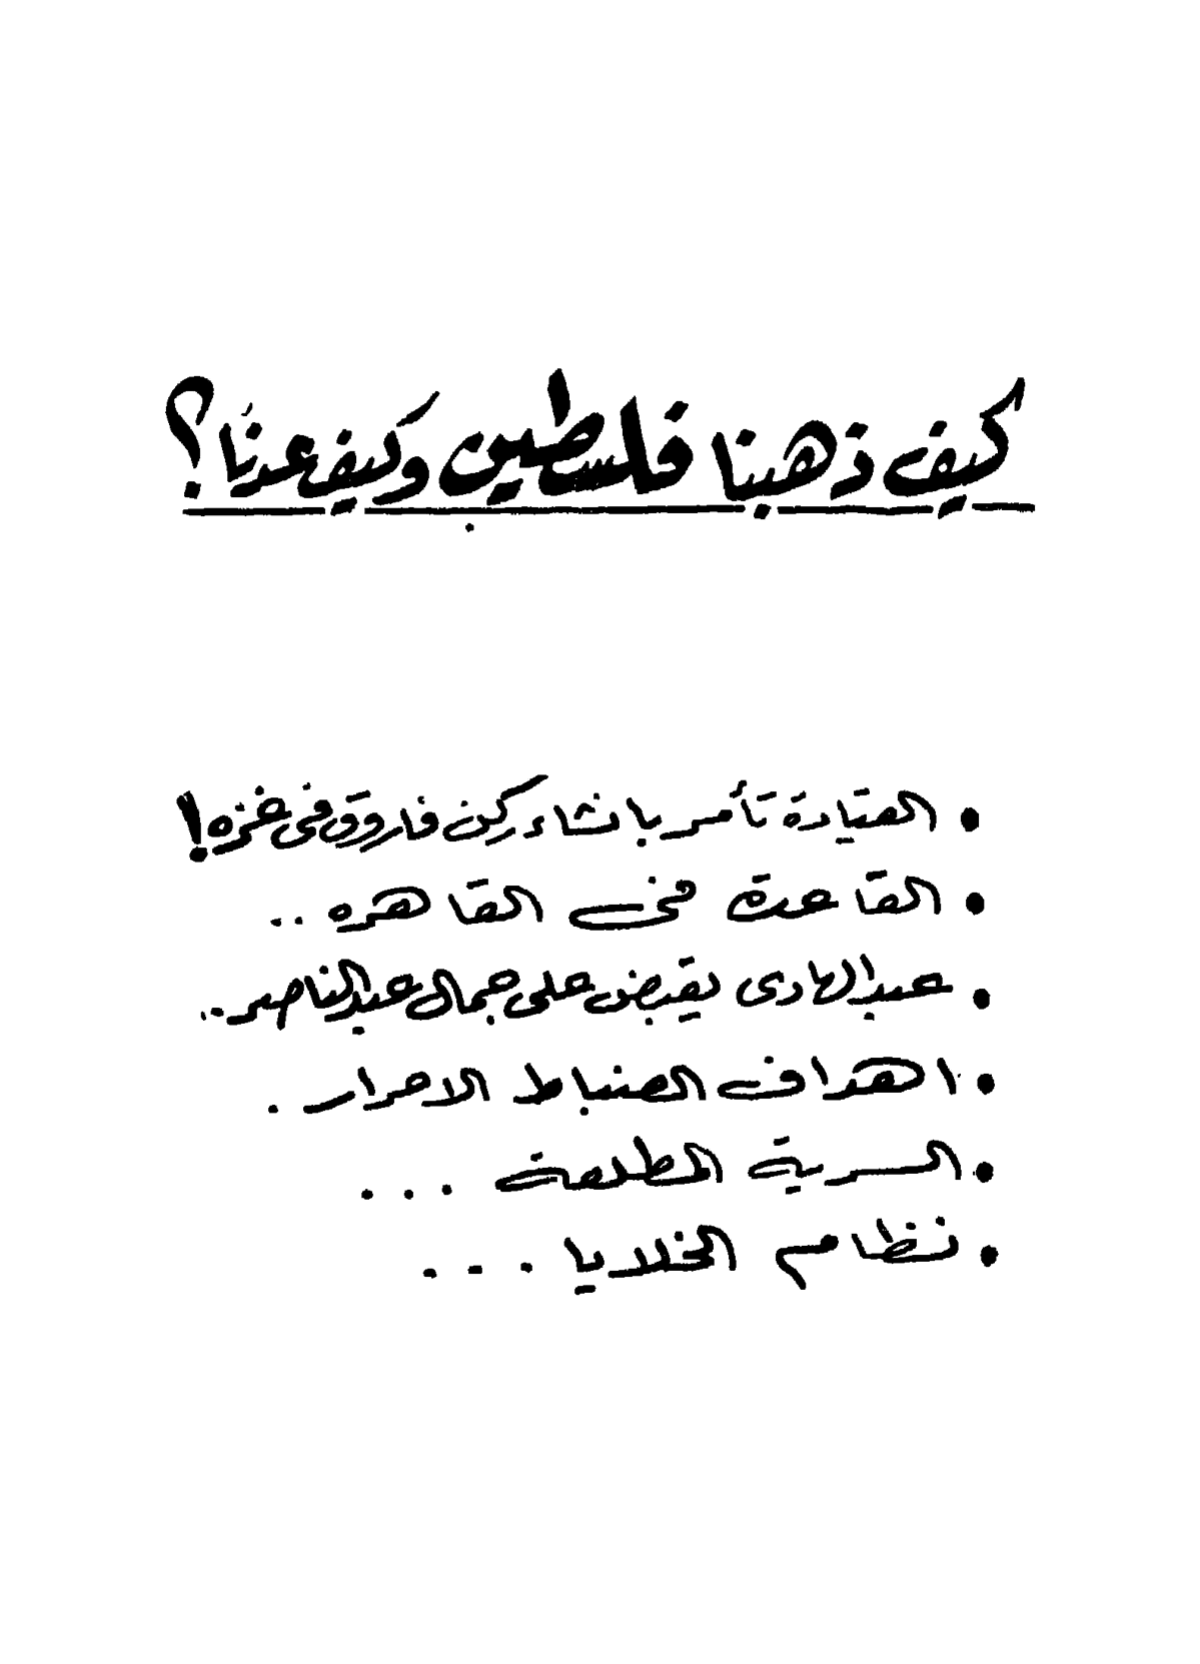 كيف ذهبنا فلسطين وكيف عدنا؟
• القيادة تأمر بانشاء ركن فاروق فى غزه!
• القاعدة فى القاهره ..
• عبد الهادى يقبض على جمال عبد الناصر ..
• اهداف الضباط الاحرار .
• السرية المطلقة ...
• نظام الخلايا ...